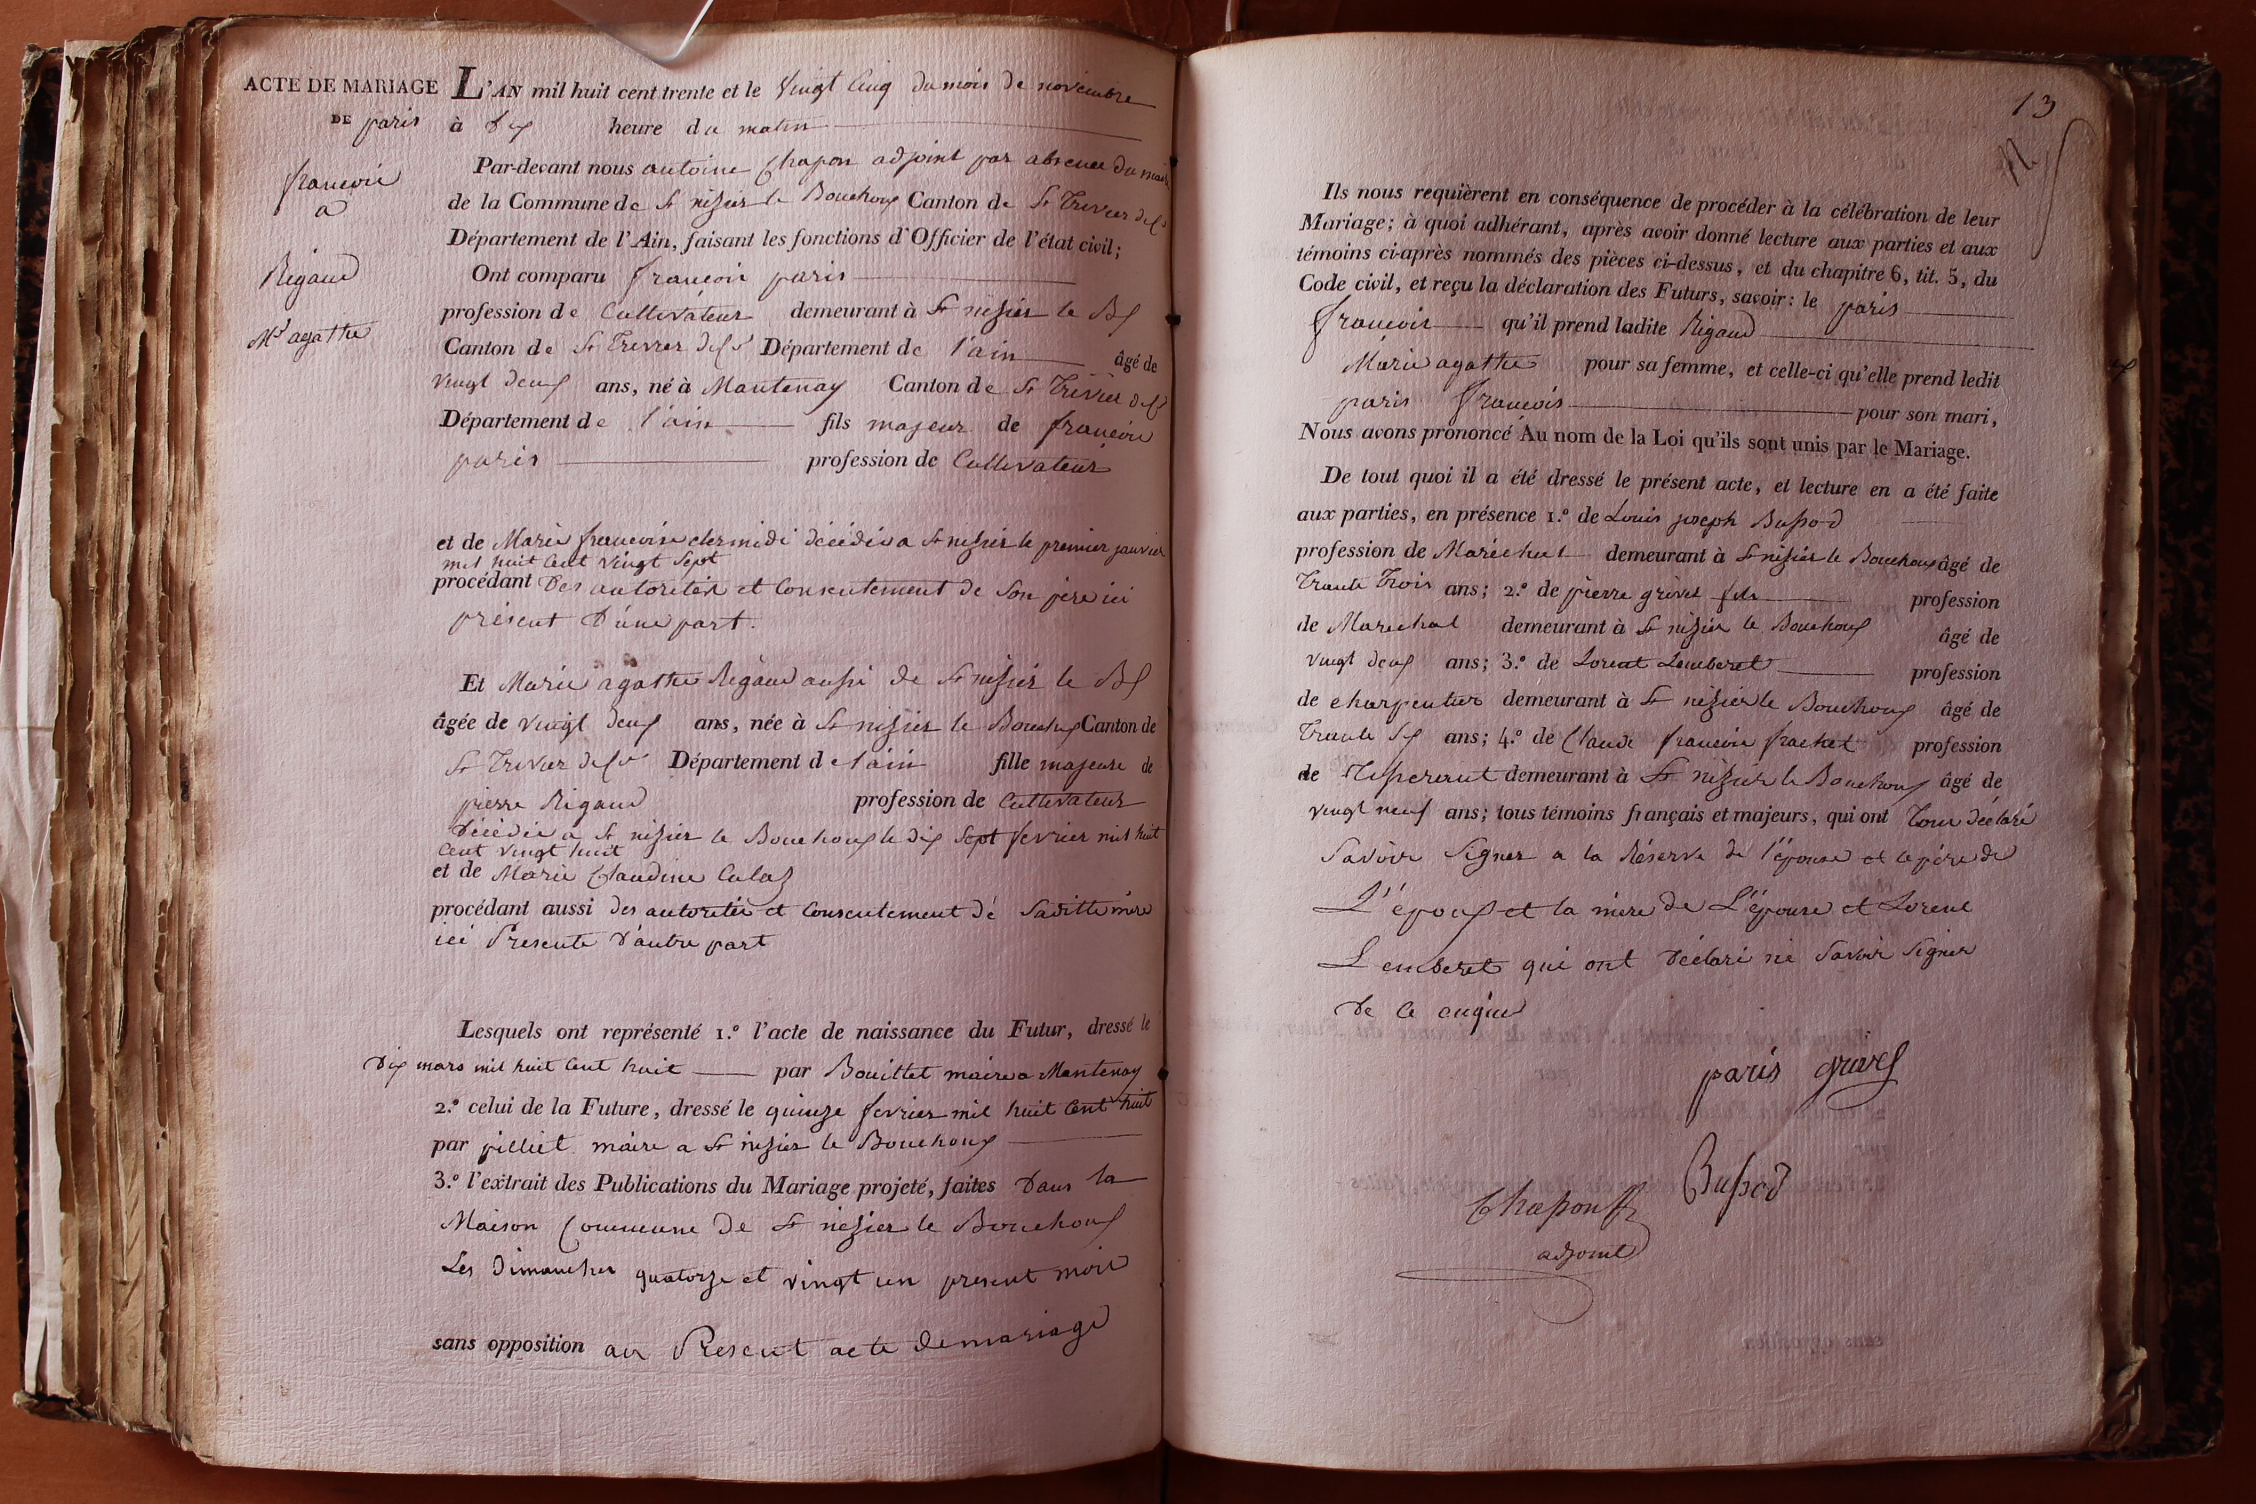 ACTE DE MARIAGE
DE paris
françois
a
Rigaud
Mie agathe
L'AN mil huit cent trente et le vingt cinq du mois de novembre
à Dix heure du matin
Par-devant nous antoine Chapon adjoint par absence du maire
de la Commune de St nizier le Bouchoux Canton de St Trivier de Cs
Département de l'Ain, faisant les fonctions d'Officier de l'état civil;
Ont comparu françois paris
profession de Cultivateur demeurant à St nizier le Bx
Canton de St Trivier de Cs Département de l'ain âgé de
vingt deux ans, né à Mantenay Canton de St Trivier de Cs
Département de l'ain fils majeur de françois
paris profession de Cultivateur
et de Marie françoise clermidi décédée a St nizier le premier janvier
mil huit Cent vingt Sept
procédant Des autorités et Consentement de Son père ici
présent D'une part.
Et Marie agathe Rigaud aussi de St nizier le Bx
âgée de vingt deux ans, née à St nizier le Bouchx Canton de
St Trivier de Cs Département de l'ain fille majeure de
pierre Rigaud profession de Cultivateur
Décédé a St nizier le Bouchoux le dix Sept fevrier mil huit
Cent vingt huit
et de Marie Claudine Calaz
procédant aussi des autorités et Consentement de Saditte mère
ici Présente D'autre part
Lesquels ont représenté 1.º l'acte de naissance du Futur, dressé le
Dix mars mil huit Cent huit par Bouillet maire a Mantenay
2.º celui de la Future, dressé le quinze fevrier mil huit Cent huit
par pilliet maire a St nizier le Bouchoux
3.º l'extrait des Publications du Mariage projeté, faites Dans la
Maison Commune De St nizier le Bouchoux
Les Dimanches quatorze et vingt un present mois
sans opposition au Présent acte de mariage
13
Ils nous requièrent en conséquence de procéder à la célébration de leur
Mariage; à quoi adhérant, après avoir donné lecture aux parties et aux
témoins ci-après nommés des pièces ci-dessus, et du chapitre 6, tit. 5, du
Code civil, et reçu la déclaration des Futurs, savoir: le paris
françois qu'il prend ladite Rigaud
Marie agathe pour sa femme, et celle-ci qu'elle prend ledit
paris françois pour son mari,
Nous avons prononcé Au nom de la Loi qu'ils sont unis par le Mariage.
De tout quoi il a été dressé le présent acte, et lecture en a été faite
aux parties, en présence 1.º de Louis joseph Bussod
profession de Maréchal demeurant à St nizier le Bouchoux âgé de
Trante Trois ans; 2.º de pierre grivel fils profession
de Marechal demeurant à St nizier le Bouchoux âgé de
vingt deux ans; 3.º de Lorent Lemberet profession
de charpentier demeurant à St nizier le Bouchoux âgé de
Trante Six ans; 4.º de Claude françois frachet profession
de Tisserant demeurant à St nizier le Bouchoux âgé de
vingt neuf ans; tous témoins français et majeurs, qui ont Tous déclaré
Savoir Signer a la Réserve de l'épouse et le père de
L'époux et la mère de L'épouse et Lorent
Lemberet qui ont Déclaré ne Savoir Signer
De ce enquis
paris grivel
Bussod
Chapon
adjoint